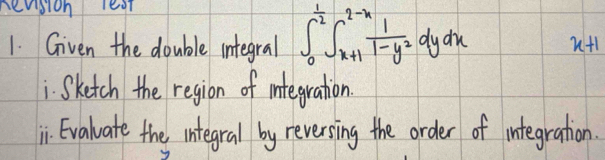 Revision Test
1. Given the double integral ∫₀^{1/2} ∫_{x+1}^{2-x} 1/(1-y²) dy dx x+1
i. Sketch the region of integration.
ii. Evaluate the integral by reversing the order of integration.
y